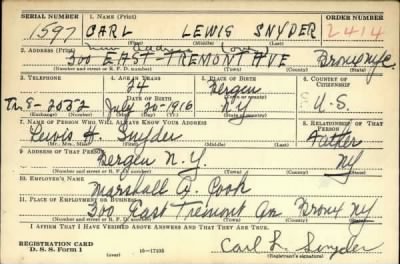 SERIAL NUMBER 1. NAME (Print) ORDER NUMBER
1597 CARL LEWIS SNYDER 2414
(First) (Middle) (Last)
2. ADDRESS (Print)
300 EAST TREMONT AVE Bronx N.Y.C.
(Number and street or R. F. D. number) (Town) (County) (State)
3. TELEPHONE 4. AGE IN YEARS 5. PLACE OF BIRTH 6. COUNTRY OF CITIZENSHIP
24 Bergen
DATE OF BIRTH
Tr. 8-2052 July 20-1916 N.Y U.S.
(Exchange) (Number) (Mo.) (Day) (Yr.) (State or country)
7. NAME OF PERSON WHO WILL ALWAYS KNOW YOUR ADDRESS 8. RELATIONSHIP OF THAT PERSON
Lewis H. Snyder Father
(Mr., Mrs., Miss) (First) (Middle) (Last)
9. ADDRESS OF THAT PERSON
Bergen N.Y. NY
(Number and street or R. F. D. number) (Town) (County) (State)
10. EMPLOYER'S NAME
Marshall Cook
11. PLACE OF EMPLOYMENT OR BUSINESS
300 East Tremont Av Bronx NY
(Number and street or R. F. D. number) (Town) (County) (State)
I AFFIRM THAT I HAVE VERIFIED ABOVE ANSWERS AND THAT THEY ARE TRUE.
REGISTRATION CARD
D. S. S. Form 1 (over) Carl L. Snyder
(Registrant's signature)